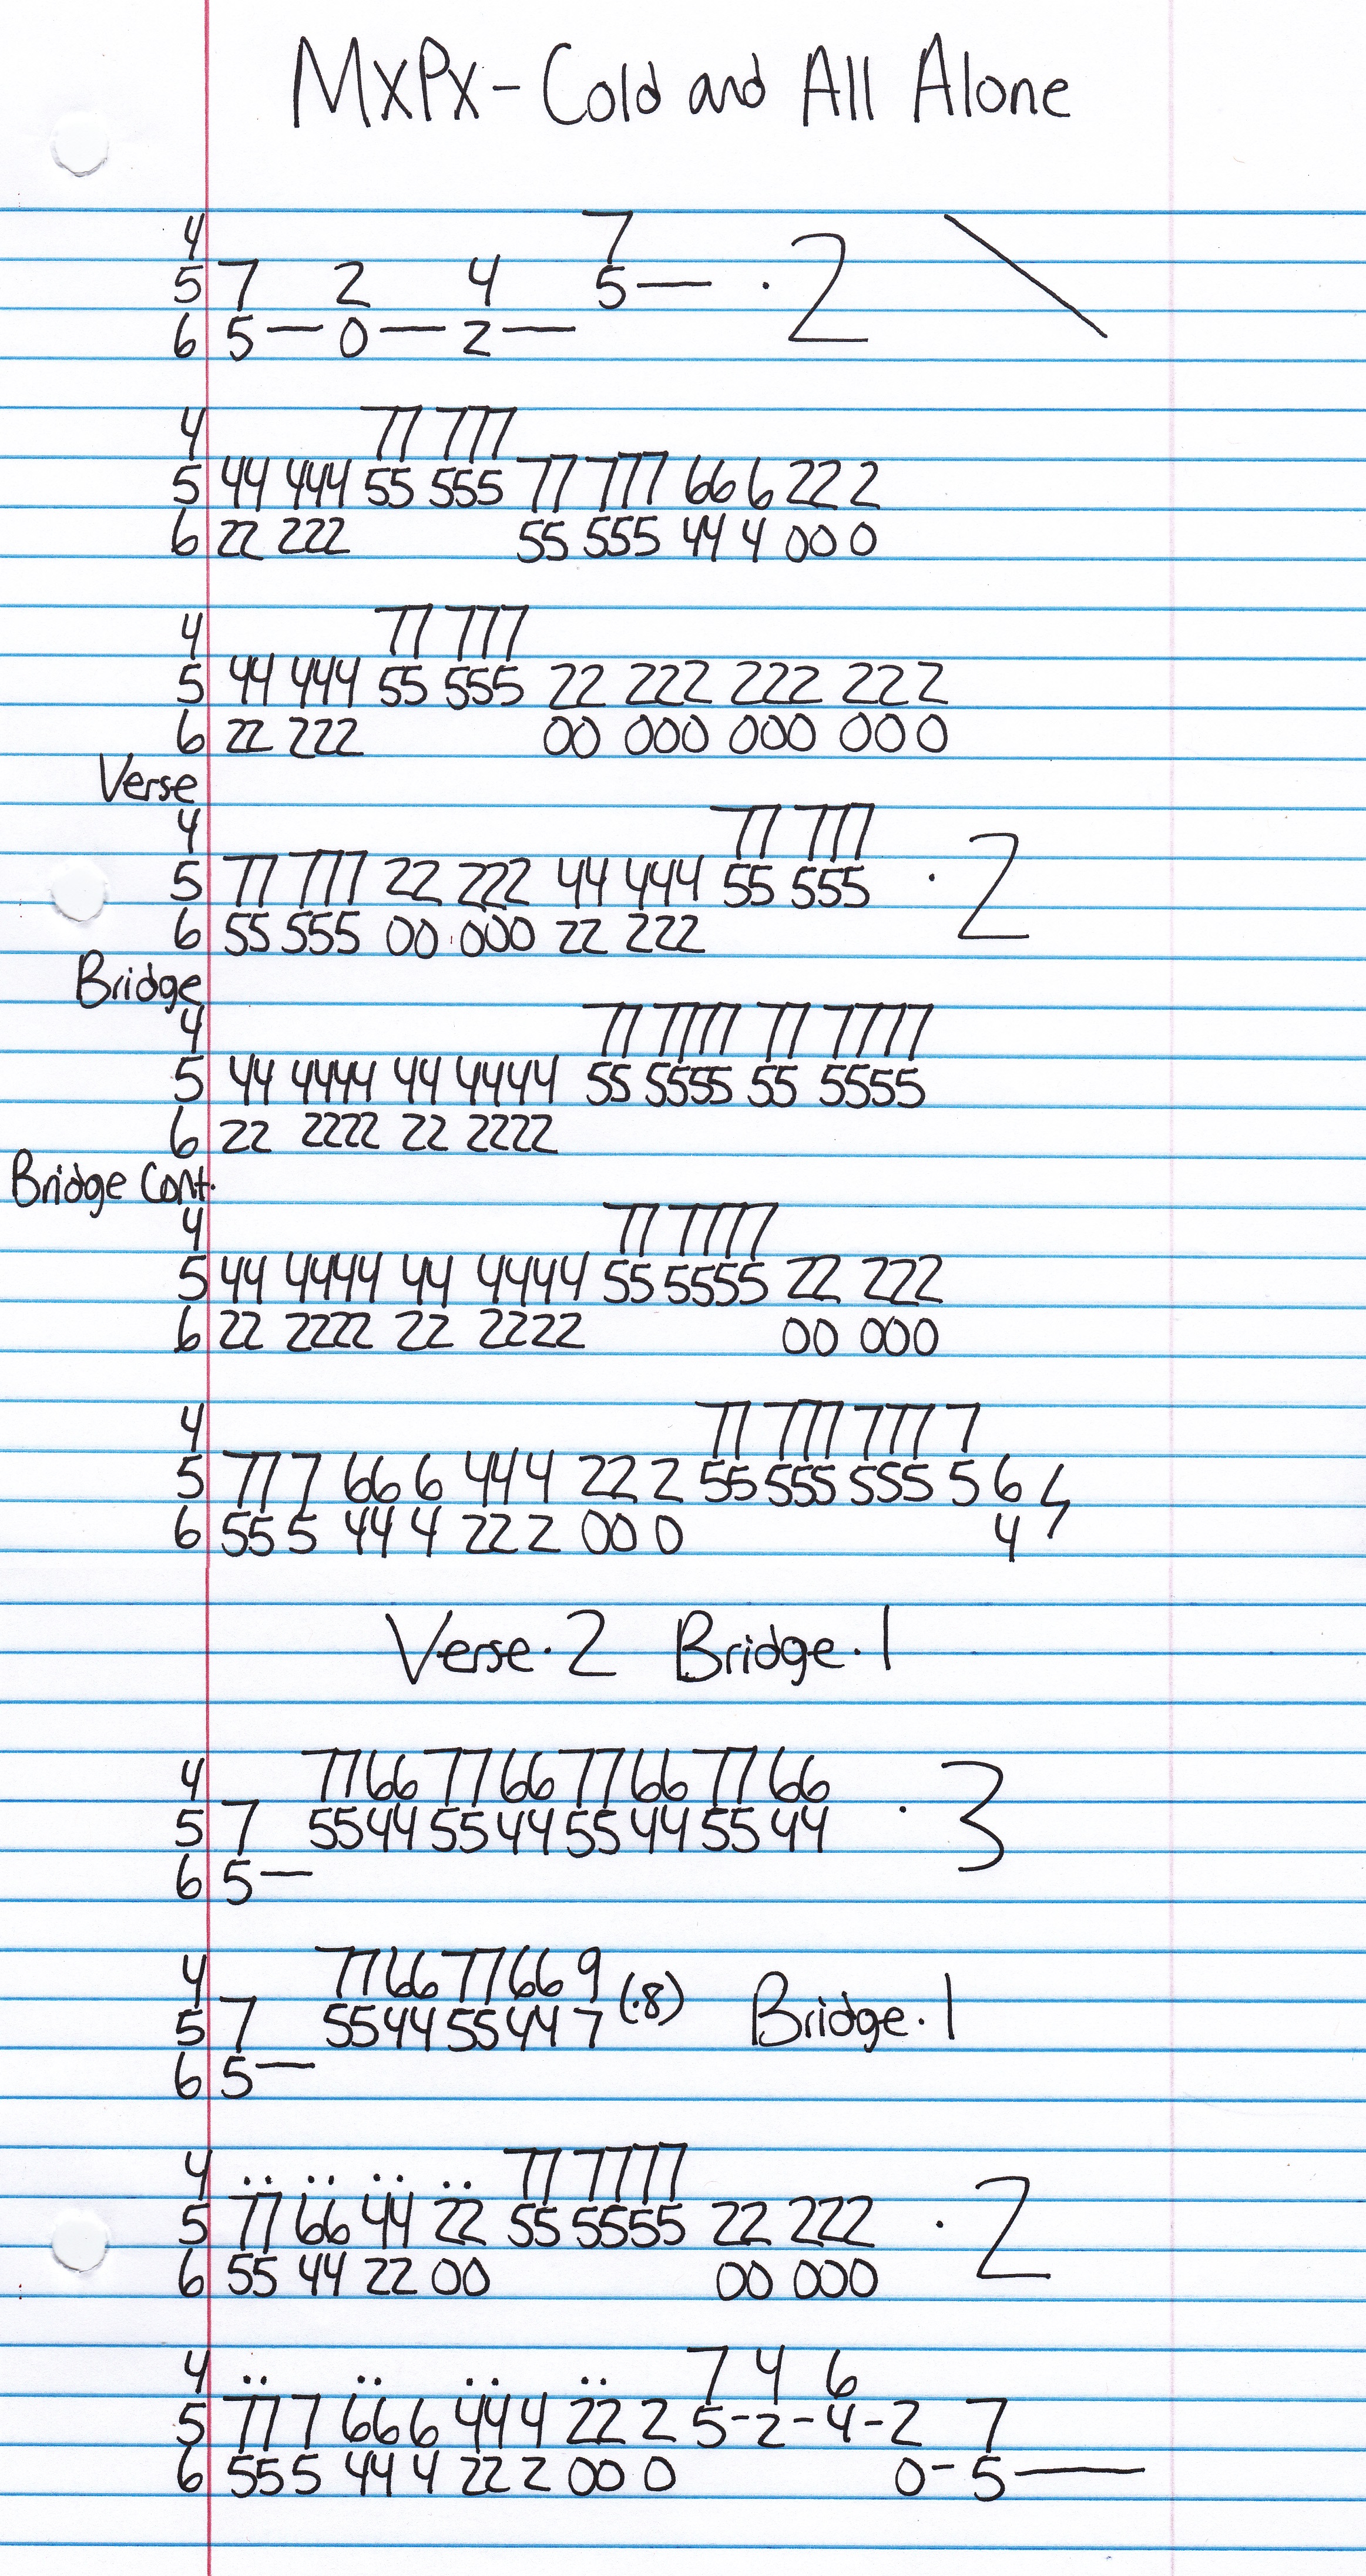 MXPX - Cold and All Alone
4 7
5 7 2 4 5— · 2 \
6 5— 0— 2—
4 77 777
5 44 444 55 555 77 777 66 6 22 2
6 22 222 55 555 44 4 00 0
4 77 777
5 44 444 55 555 22 222 222 22 2
6 22 222 00 000 000 00 0
Verse
4 77 777
5 77 777 22 222 44 444 55 555 · 2
6 55 555 00 000 22 222
Bridge
4 77 7777 77 7777
5 44 4444 44 4444 55 5555 55 5555
6 22 2222 22 2222
Bridge Cont.
4 77 7777
5 44 4444 44 4444 55 5555 22 222
6 22 2222 22 2222 00 000
4 77 777 777 7
5 77 7 66 6 44 4 22 2 55 555 555 5 6
6 55 5 44 4 22 2 00 0 4
Verse·2 Bridge·1
4 7766 7766 7766 7766
5 7 5544 5544 5544 5544 · 3
6 5—
4 7766 7766 9
5 7 5544 5544 7 (·8) Bridge·1
6 5—
4 .. .. .. .. 77 7777
5 77 66 44 22 55 5555 22 222 · 2
6 55 44 22 00 00 000
4 .. .. .. .. 7 4 6
5 77 7 66 6 44 4 22 2 5-2-4-2 7
6 55 5 44 4 22 2 00 0 0-5—